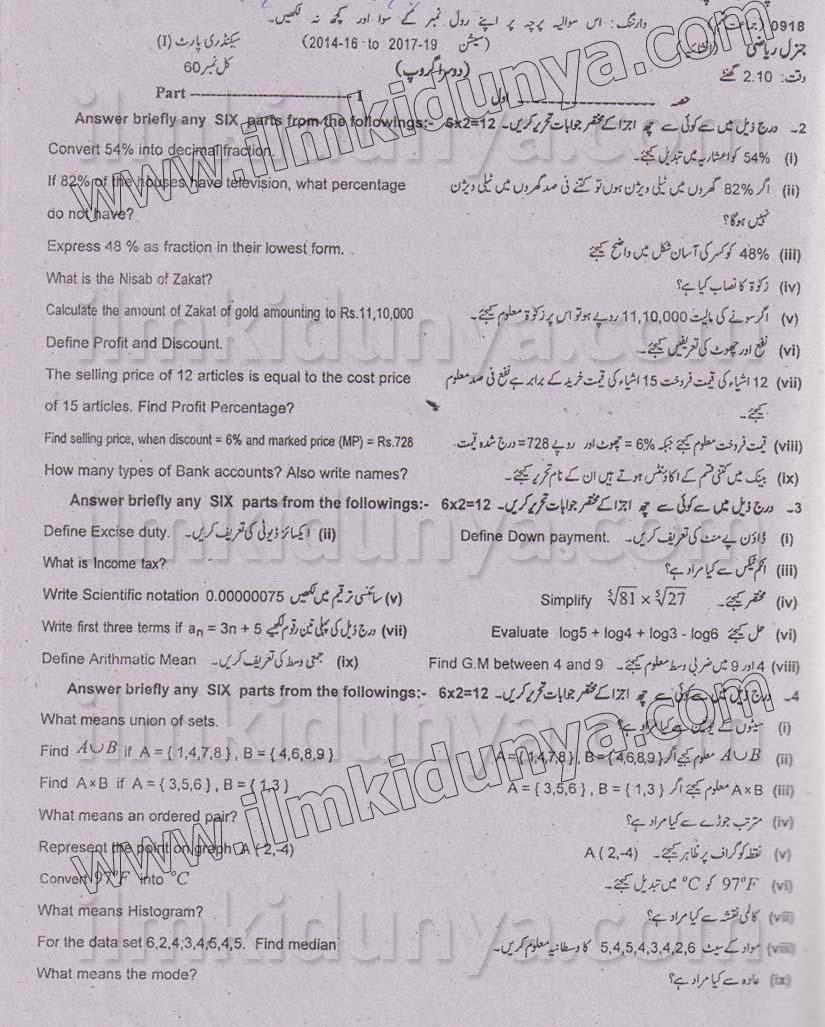 وارننگ: اس سوالیہ پرچہ پر اپنے رول نمبر کے سوا اور کچھ نہ لکھیں۔ 0918
جنرل ریاضی (سیشن 2014-16 to 2017-19) سیکنڈری پارٹ (I)
وقت: 2.10 گھنٹے (دوسرا گروپ) کل نمبر 60
Part ---------- I حصہ ---------- اول
Answer briefly any SIX parts from the followings:- 6x2=12 2۔ درج ذیل میں سے کوئی سے چھ اجزا کے مختصر جوابات تحریر کریں۔
Convert 54% into decimal fraction. (i) 54% کو اعشاریہ میں تبدیل کیجئے۔
If 82% of the houses have television, what percentage (ii) اگر 82% گھروں میں ٹیلی ویژن ہوں تو کتنے فی صد گھروں میں ٹیلی ویژن
do not have? نہیں ہوگا؟
Express 48 % as fraction in their lowest form. (iii) 48% کو کسر کی آسان شکل میں واضح کیجئے
What is the Nisab of Zakat? (iv) زکوٰۃ کا نصاب کیا ہے؟
Calculate the amount of Zakat of gold amounting to Rs.11,10,000 (v) اگر سونے کی مالیت 11,10,000 روپے ہو تو اس پر زکوٰۃ معلوم کیجئے۔
Define Profit and Discount. (vi) نفع اور چھوٹ کی تعریفیں کیجئے۔
The selling price of 12 articles is equal to the cost price (vii) 12 اشیاء کی قیمت فروخت 15 اشیاء کی قیمت خرید کے برابر ہے نفع فی صد معلوم
of 15 articles. Find Profit Percentage? کیجئے۔
Find selling price, when discount = 6% and marked price (MP) = Rs.728 (viii) قیمت فروخت معلوم کیجئے جبکہ 6% = چھوٹ اور روپے 728 = درج شدہ قیمت
How many types of Bank accounts? Also write names? (ix) بینک میں کتنی قسم کے اکاؤنٹس ہوتے ہیں ان کے نام تحریر کیجئے۔
Answer briefly any SIX parts from the followings:- 6x2=12 3۔ درج ذیل میں سے کوئی سے چھ اجزا کے مختصر جوابات تحریر کریں۔
Define Excise duty. (ii) ایکسائز ڈیوٹی کی تعریف کریں۔ Define Down payment. (i) ڈاؤن پے منٹ کی تعریف کریں۔
What is Income tax? (iii) انکم ٹیکس سے کیا مراد ہے؟
Write Scientific notation 0.00000075 سائنسی ترقیم میں لکھیں (v) Simplify ⁵√81 × ⁵√27 (iv) مختصر کیجئے۔
Write first three terms if aₙ = 3n + 5 درج ذیل کی پہلی تین رقوم لکھیے (vii) Evaluate log5 + log4 + log3 - log6 حل کیجئے (vi)
Define Arithmatic Mean (ix) جمعی وسط کی تعریف کریں۔ Find G.M between 4 and 9 (viii) 4 اور 9 میں ضربی وسط معلوم کیجئے۔
Answer briefly any SIX parts from the followings:- 6x2=12 4۔ درج ذیل میں سے کوئی سے چھ اجزا کے مختصر جوابات تحریر کریں۔
What means union of sets. (i) سیٹوں کے یونین سے کیا مراد ہے؟
Find A∪B if A = { 1,4,7,8 } , B = { 4,6,8,9 } (ii) A∪B معلوم کیجئے اگر A = { 1,4,7,8 } , B = { 4,6,8,9 }
Find A×B if A = { 3,5,6 } , B = { 1,3 } (iii) A×B معلوم کیجئے اگر A = { 3,5,6 } , B = { 1,3 }
What means an ordered pair? (iv) مترتب جوڑے سے کیا مراد ہے؟
Represent the point on graph A ( 2,-4) (v) نقطہ کو گراف پر ظاہر کیجئے۔ A ( 2,-4)
Convert 97°F into °C (vi) 97°F کو °C میں تبدیل کیجئے۔
What means Histogram? (vii) کالمی نقشہ سے کیا مراد ہے؟
For the data set 6,2,4,3,4,5,4,5. Find median (viii) مواد کے سیٹ 5,4,5,4,3,4,2,6 کا وسطانیہ معلوم کریں۔
What means the mode? (ix) عادہ سے کیا مراد ہے؟
www.ilmkidunya.com
www.ilmkidunya.com
ilmkidunya.com
ilmkidunya.com
ilmkidunya.com
ilmkidunya.com
ilmkidunya.com